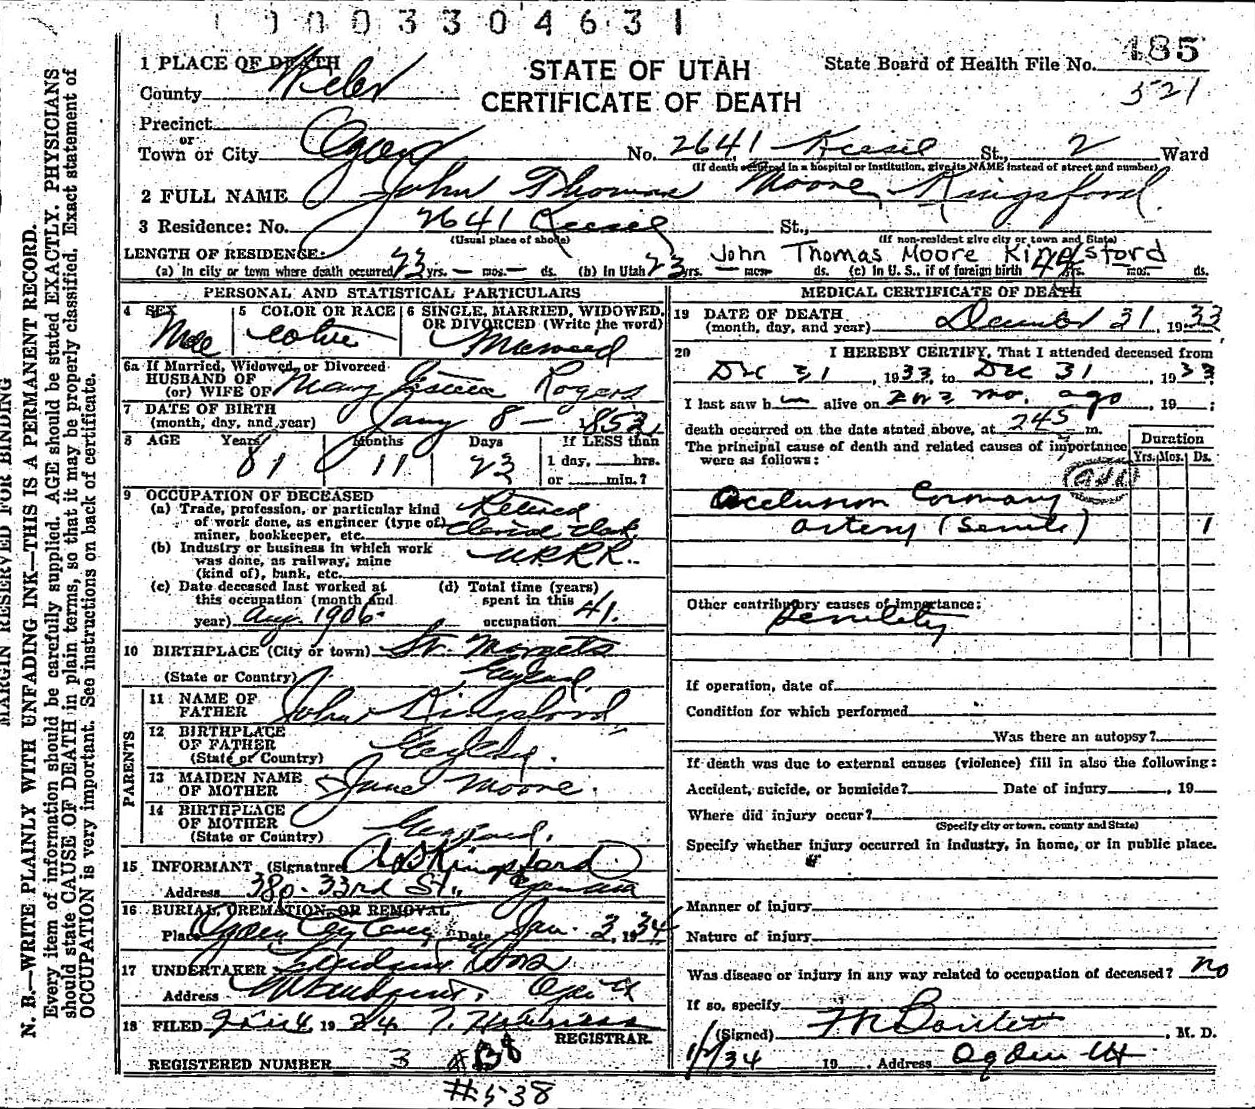 0003304631
1 PLACE OF DEATH
STATE OF UTAH
CERTIFICATE OF DEATH
State Board of Health File No. 485
521
County Weber
Precinct
or
Town or City Ogden No. 2641 Kiesel St., 2 Ward
(If death occurred in a hospital or institution, give its NAME instead of street and number)
2 FULL NAME John Thomas Moore Kingsford
3 Residence: No. 2641 Kiesel St.,
(Usual place of abode) (If non-resident give city or town and State)
John Thomas Moore Kingsford
LENGTH OF RESIDENCE:
(a) In city or town where death occurred 23 yrs. — mos. — ds. (b) In Utah 23 yrs. — mos. ds. (c) In U. S., if of foreign birth yrs. mos. ds.
PERSONAL AND STATISTICAL PARTICULARS
4 SEX Male
5 COLOR OR RACE
6 SINGLE, MARRIED, WIDOWED, OR DIVORCED (Write the word) Married
6a If Married, Widowed, or Divorced
HUSBAND OF
(or) WIFE OF Mary Rogers
7 DATE OF BIRTH
(month, day, and year) Jany 8 - 1852
8 AGE Years 81 Months 11 Days 23 If LESS than
1 day, hrs.
or min.?
9 OCCUPATION OF DECEASED
(a) Trade, profession, or particular kind of work done, as engineer (type of) miner, bookkeeper, etc. Retired Clerk
(b) Industry or business in which work was done, as railway, mine (kind of), bank, etc. U.P.R.R.
(c) Date deceased last worked at this occupation (month and year) Aug. 1906
(d) Total time (years) spent in this occupation 41.
10 BIRTHPLACE (City or town) St. Margets
(State or Country) England.
PARENTS
11 NAME OF FATHER John Kingsford
12 BIRTHPLACE OF FATHER
(State or Country) England.
13 MAIDEN NAME OF MOTHER Jane Moore.
14 BIRTHPLACE OF MOTHER
(State or Country) England.
15 INFORMANT (Signature) Kingsford
Address 380-33rd St.,
16 BURIAL, CREMATION, OR REMOVAL
Place Ogden City Date Jan. 3, 1934
17 UNDERTAKER
Address
18 FILED 19 34
REGISTRAR.
REGISTERED NUMBER 3
#538
MEDICAL CERTIFICATE OF DEATH
19 DATE OF DEATH
(month, day, and year) December 31, 1933
20 I HEREBY CERTIFY, That I attended deceased from
Dec 31, 1933, to Dec 31 1933
I last saw h im alive on 2 or 3 mo. ago, 19 ;
death occurred on the date stated above, at 245 m.
The principal cause of death and related causes of importance were as follows:
Duration
Yrs. Mos. Ds.
Occlusion Coronary
artery (Senile) 1
Other contributory causes of importance:
Senility
If operation, date of
Condition for which performed
Was there an autopsy?
If death was due to external causes (violence) fill in also the following:
Accident, suicide, or homicide? Date of injury , 19
Where did injury occur?
(Specify city or town, county and State)
Specify whether injury occurred in industry, in home, or in public place.
Manner of injury
Nature of injury
Was disease or injury in any way related to occupation of deceased? no
If so, specify
(Signed) Bartlett , M. D.
1/2/34 19 . Address Ogden Ut
MARGIN RESERVED FOR BINDING
N. B.—WRITE PLAINLY WITH UNFADING INK—THIS IS A PERMANENT RECORD.
Every item of information should be carefully supplied. AGE should be stated EXACTLY. PHYSICIANS
should state CAUSE OF DEATH in plain terms, so that it may be properly classified. Exact statement of
OCCUPATION is very important. See instructions on back of certificate.